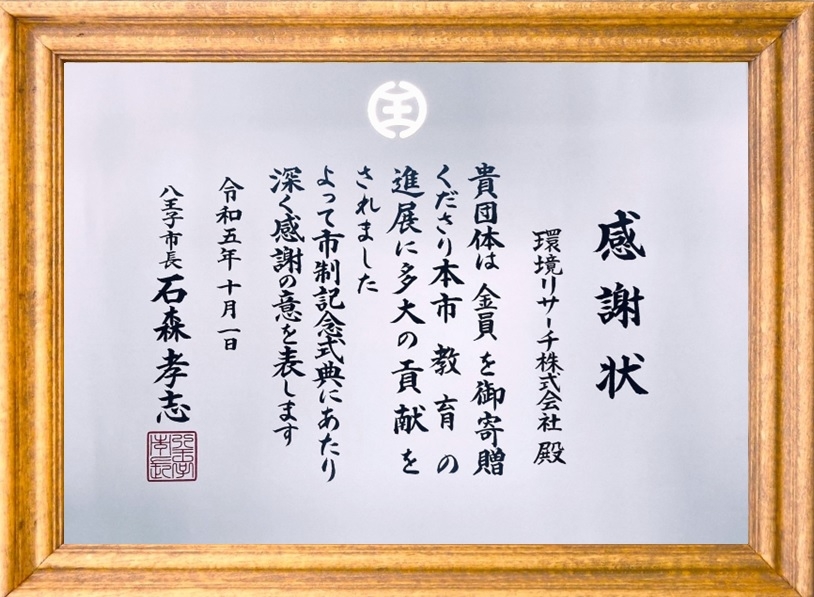 感謝状
環境リサーチ株式会社 殿
貴団体は金員を御寄贈
くださり本市教育の
進展に多大の貢献を
されました
よって市制記念式典にあたり
深く感謝の意を表します
令和五年十月一日
八王子市長 石森孝志